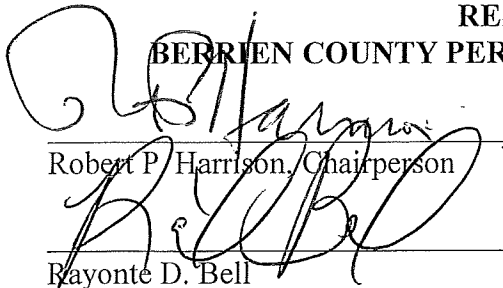 RE
BERRIEN COUNTY PER
Robert P. Harrison, Chairperson
Rayonte D. Bell